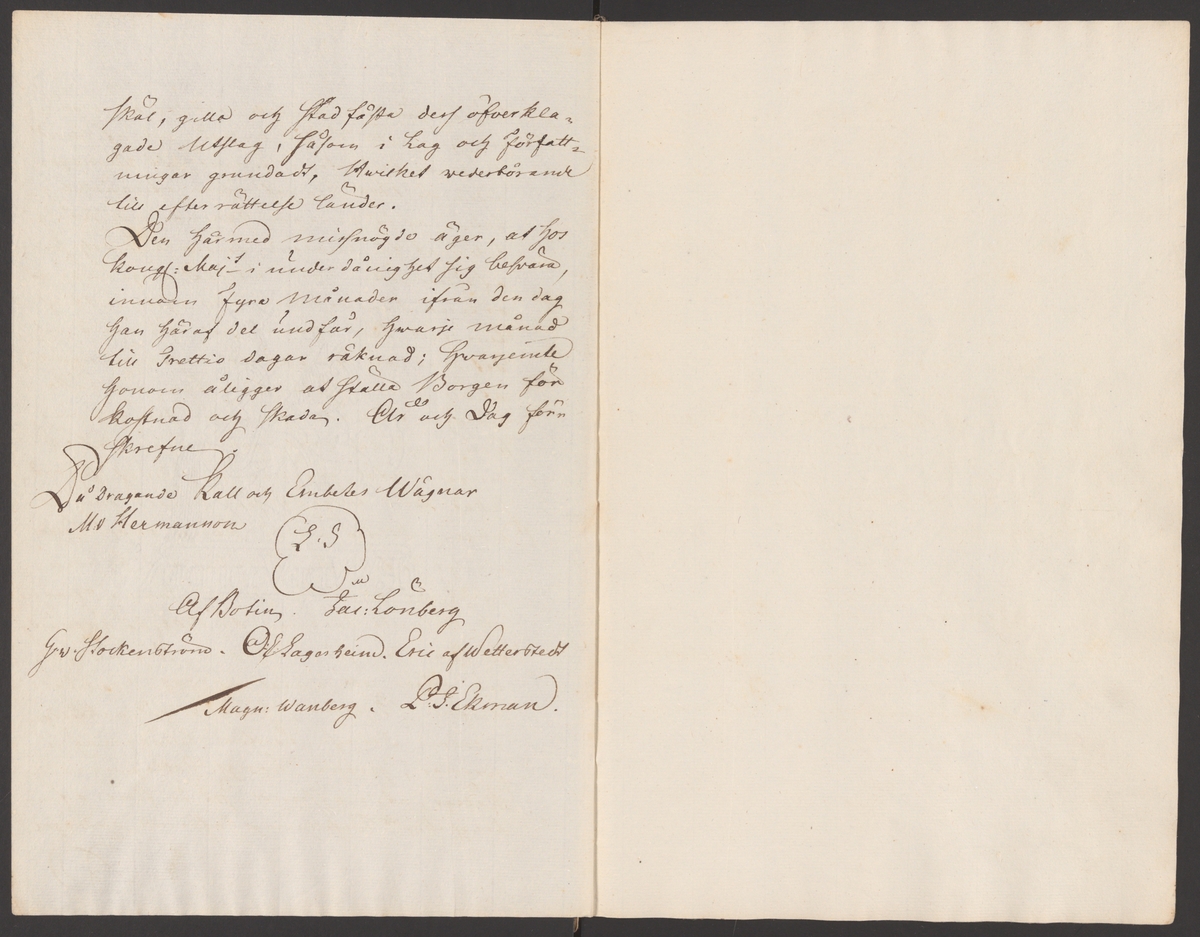 skäl, gilla och stadfästa dess öfverkla=
gade Utslag, såsom i Lag och författ=
ningar grundadt, Hwilket wederbörande
till efterrättelse länder.
Den härmed missnögdo äger, at hos
Kongl: Maj:t i underdånighet sig besvära,
innom fyra Månader ifrån den dag
han häraf del undfår, hwarje månad
till Trettio dagar räknad; hwarjemte
honom åligger at ställa Borgen för
kostnad och skada. År och Dag förr
skrefne.
På Dragande Kall och Embetes Wägnar
Mv Hermannon
L.S
Af Botin. Jac: Lönberg
Gr v. Stockenström. Of Lagerheim. Eric af Wetterstedt
Magn: Wanberg. P. J. Ekman.